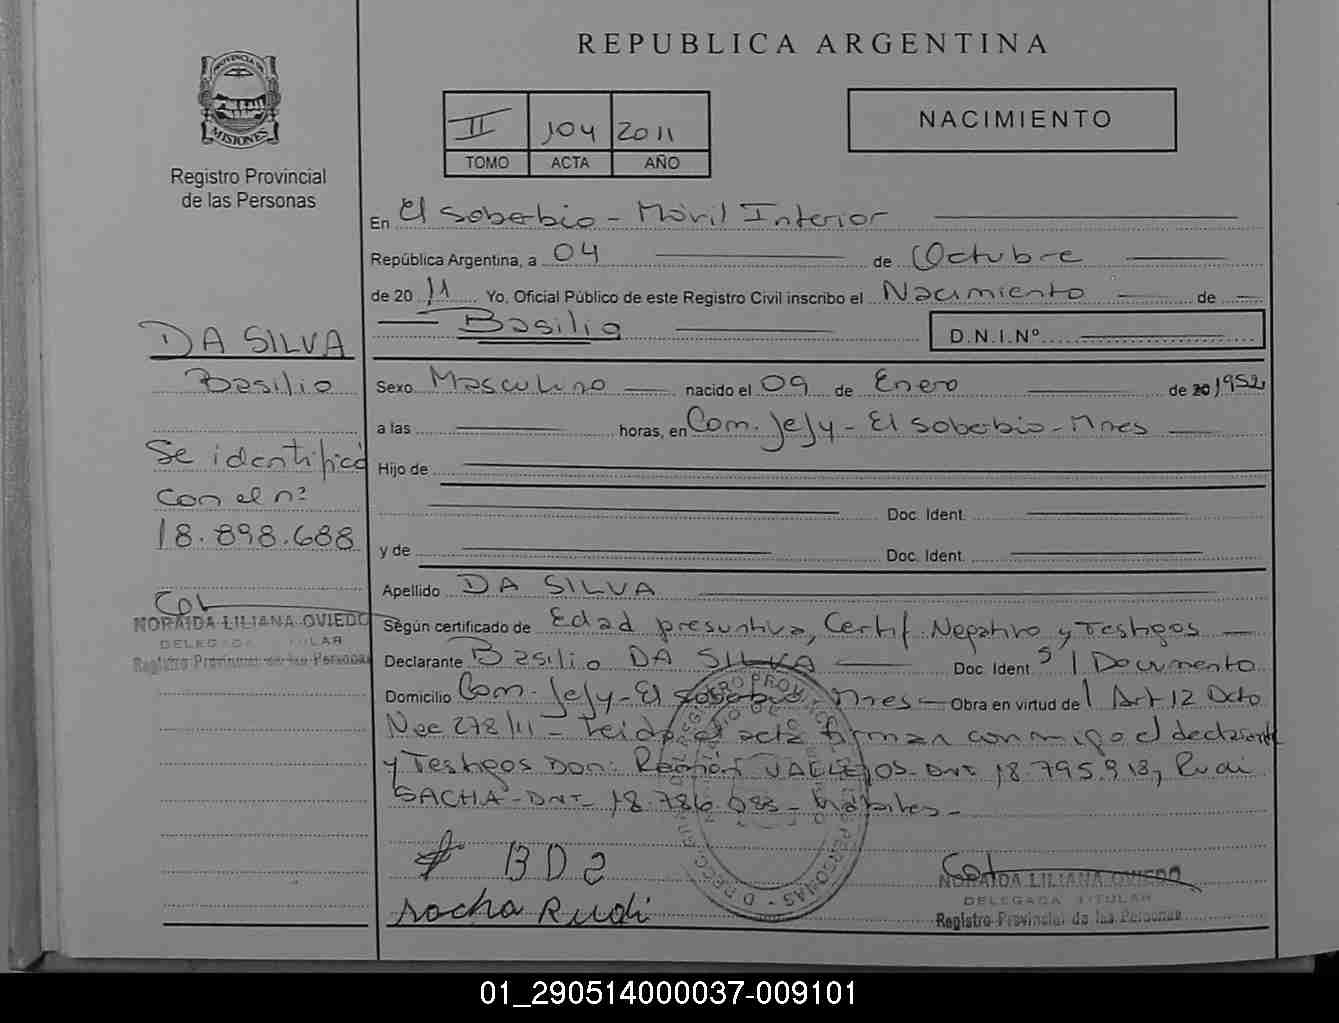 REPUBLICA ARGENTINA
PROVINCIA DE
MISIONES
Registro Provincial
de las Personas
II 104 2011
TOMO ACTA AÑO
NACIMIENTO
En El Soberbio - Móvil Interior
República Argentina, a 04 de Octubre
de 2011 Yo, Oficial Público de este Registro Civil inscribo el Nacimiento de
Basilio D.N.I.Nº
DA SILVA
Basilio
Se identificó
con el nº
18.898.688
NORAIDA LILIANA OVIEDO
DELEGADA TITULAR
Registro Provincial de las Personas
Sexo Masculino nacido el 09 de Enero de 20 1952
a las horas, en Com. Jejy - El Soberbio - Mnes
Hijo de
Doc. Ident.
y de Doc. Ident.
Apellido DA SILVA
Según certificado de Edad presuntiva, Certif. Negativo y Testigos
Declarante Basilio DA SILVA Doc. Ident. S/ Documento
Domicilio Com. Jejy - El Soberbio Mnes - Obra en virtud del Art 12 Dcto
Nac 278/11 - Leida el acta firman conmigo el declarante
y Testigos Don: Ramón VALLEJOS - DNI 18.795.913, Rudi
SACHA - DNI - 18.786.083 - hábiles -
BD2
sacha Rudi
NORAIDA LILIANA OVIEDO
DELEGADA TITULAR
Registro Provincial de las Personas
01_290514000037-009101